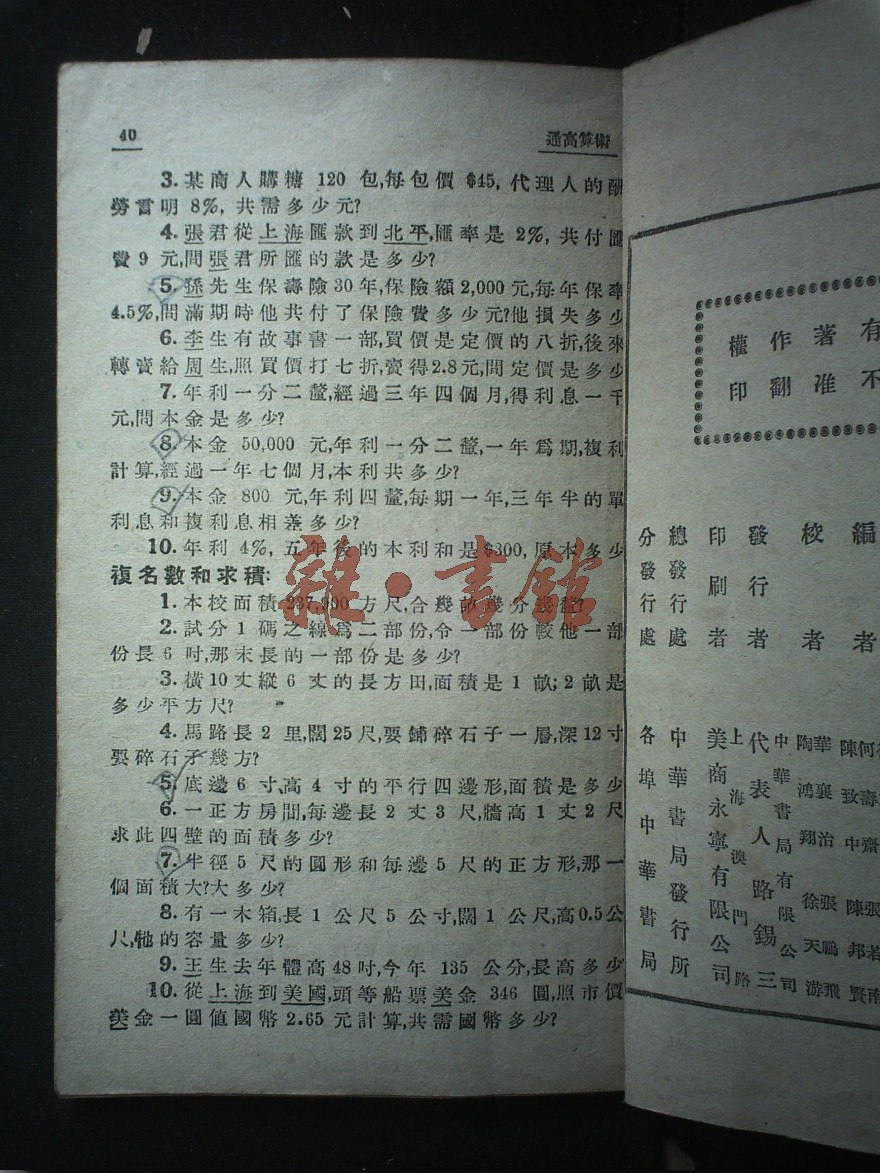 40
通高算術
3. 某商人購糖 120 包,每包價 $45, 代理人的酬
勞言明 8%, 共需多少元?
4. 張君從上海匯款到北平,匯率是 2%, 共付匯
費 9 元,問張君所匯的款是多少?
5. 孫先生保壽險30年,保險額2,000元,每年保率
4.5%,問滿期時他共付了保險費多少元?他損失多少
6. 李生有故事書一部,買價是定價的八折,後來
轉賣給周生,照買價打七折,賣得2.8元,問定價是多少
7. 年利一分二釐,經過三年四個月,得利息一千
元,問本金是多少?
8. 本金 50,000 元,年利一分二釐,一年爲期,複利
計算,經過一年七個月,本利共多少?
9. 本金 800 元,年利四釐,每期一年,三年半的單
利息和複利息相差多少?
10. 年利 4%, 五年後的本利和是$300, 原本多少
複名數和求積:
1. 本校面積 方尺,合幾畝幾分幾釐?
2. 試分 1 碼之線爲二部份,令一部份較他一部
份長 6 吋,那末長的一部份是多少?
3. 橫10丈縱 6 丈的長方田,面積是 1 畝; 2 畝是
多少平方尺?
4. 馬路長 2 里,闊 25 尺,要鋪碎石子一層,深12寸
要碎石子幾方?
5. 底邊 6 寸,高 4 寸的平行四邊形,面積是多少
6. 一正方房間,每邊長 2 丈 3 尺,牆高 1 丈 2 尺
求此四壁的面積多少?
7. 半徑 5 尺的圓形和每邊 5 尺的正方形,那一
個面積大?大多少?
8. 有一木箱,長 1 公尺 5 公寸,闊 1 公尺,高0.5公
尺,牠的容量多少?
9. 王生去年體高48吋,今年 135 公分,長高多少
10. 從上海到美國,頭等船票美金 346 圓,照市價
美金一圓值國幣 2.65 元計算,共需國幣多少?
雜·書館
有
著
作
權
不
准
翻
印
編 者
校 者
發行者
印刷者
總發行處
分發行處
陶鴻翔
華襄治
徐天游
張鵬飛
中華書局有限公司
代表人路錫三
上海澳門路
美商永寧有限公司
中華書局發行所
各埠中華書局